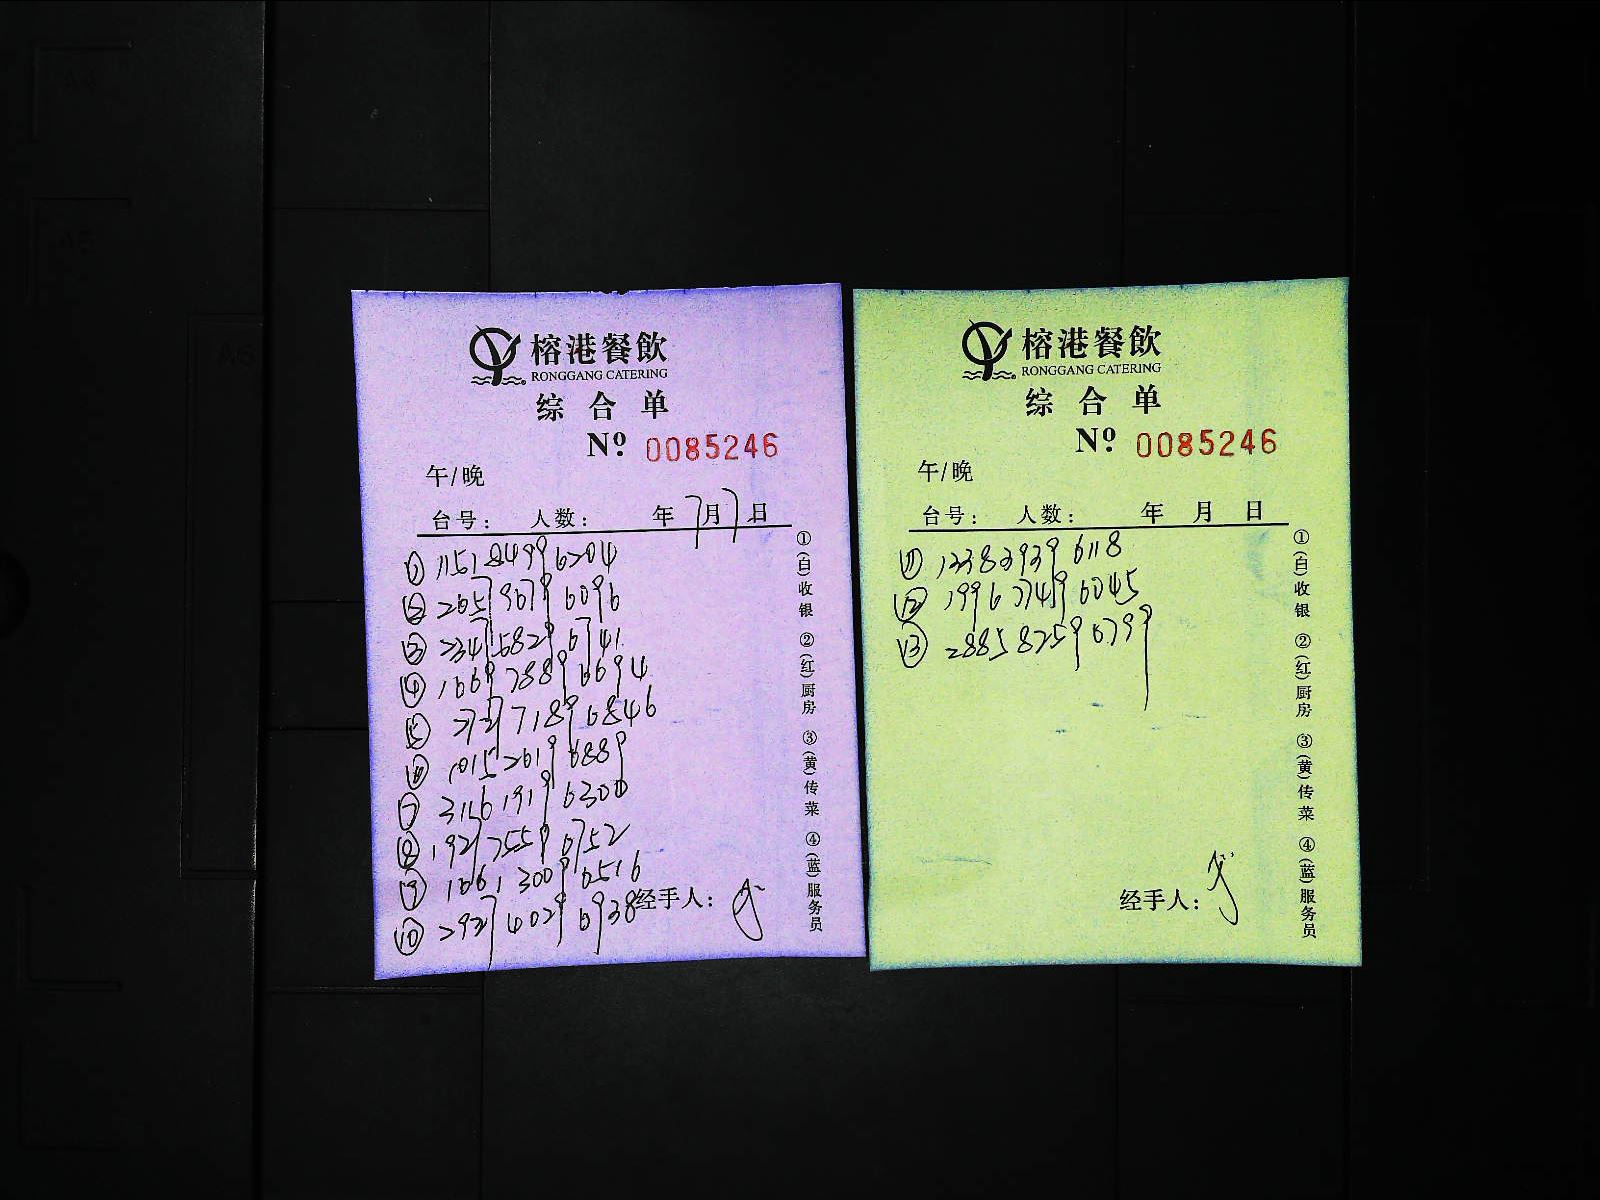 榕港餐飲
RONGGANG CATERING
综合单
Nº 0085246
午/晚
台号： 人数： 年 7月7日
① 11518499 6704
② 26579679 6096
③ 23475829 6741
④ 16697889 6694
⑤ 7189 6846
⑥ 10152619 6889
⑦ 3116191 6300
⑧ 19277559 6752
⑨ 16613009 6516
⑩ 29274029 6938
经手人：
①(白)收银 ②(红)厨房 ③(黄)传菜 ④(蓝)服务员
榕港餐飲
RONGGANG CATERING
综合单
Nº 0085246
午/晚
台号： 人数： 年 月 日
⑪ 12383939 6118
⑫ 19967749 6045
⑬ 28858259 6799
经手人：
①(白)收银 ②(红)厨房 ③(黄)传菜 ④(蓝)服务员